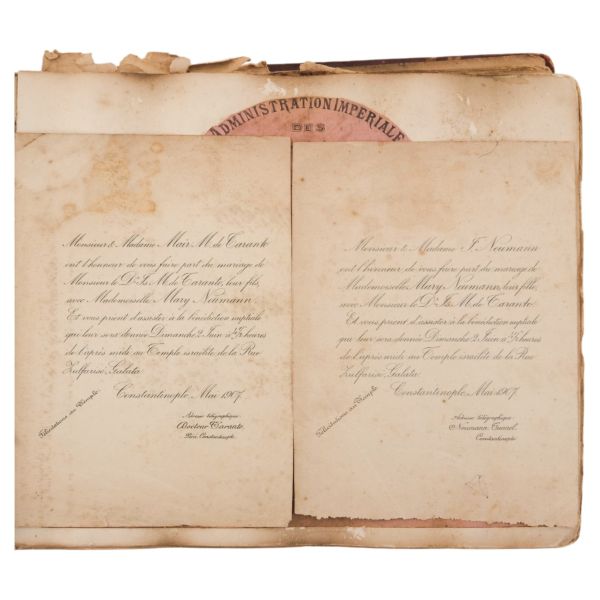 ADMINISTRATION IMPERIALE
DES
Monsieur & Madame Maïr M. de Taranto
ont l'honneur de vous faire part du mariage de
Monsieur le Dr Is. M. de Taranto, leur fils,
avec Mademoiselle Mary Neumann.
Et vous prient d'assister à la bénédiction nuptiale
que leur sera donnée Dimanche 2 Juin à heures
de l'après midi au Temple israélite de la Rue
Zulfariss, Galata.
Constantinople, Mai 1907.
Félicitations au Temple
Adresse télégraphique:
Docteur Taranto
Péra, Constantinople.
Monsieur & Madame J. Neumann
ont l'honneur de vous faire part du mariage de
Mademoiselle Mary Neumann, leur fille,
avec Monsieur le Dr Is. M. de Taranto.
Et vous prient d'assister à la bénédiction nuptiale
que leur sera donnée Dimanche 2 Juin à heures
de l'après midi au Temple israélite de la Rue
Zulfariss, Galata.
Constantinople, Mai 1907.
Félicitations au Temple
Adresse télégraphique:
Neumann Tunnel
Constantinople